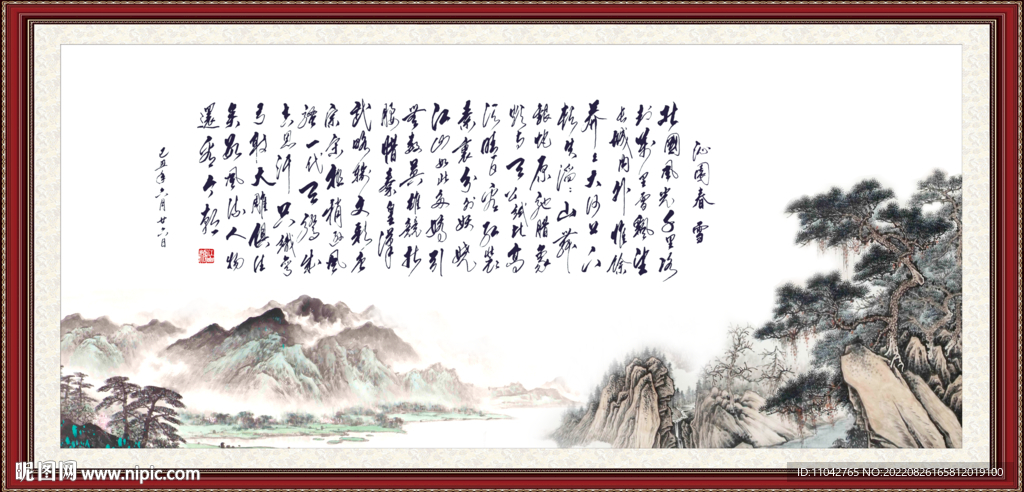 沁園春 雪
北國風光千里冰
封萬里雪飄望
長城內外惟餘
莽莽大河上下
頓失滔滔山舞
銀蛇原馳腊象
欲與天公試比高
須晴日看紅裝
素裹分外妖嬈
江山如此多嬌引
無數英雄競折
腰惜秦皇漢
武略輸文彩唐
宗宋祖稍遜風
騷一代天驕成
吉思汗只識彎
弓射大雕俱往
矣數風流人物
還看今朝
己丑年六月廿六日
昵图网 www.nipic.com
ID:11042765 NO:20220826165812019100